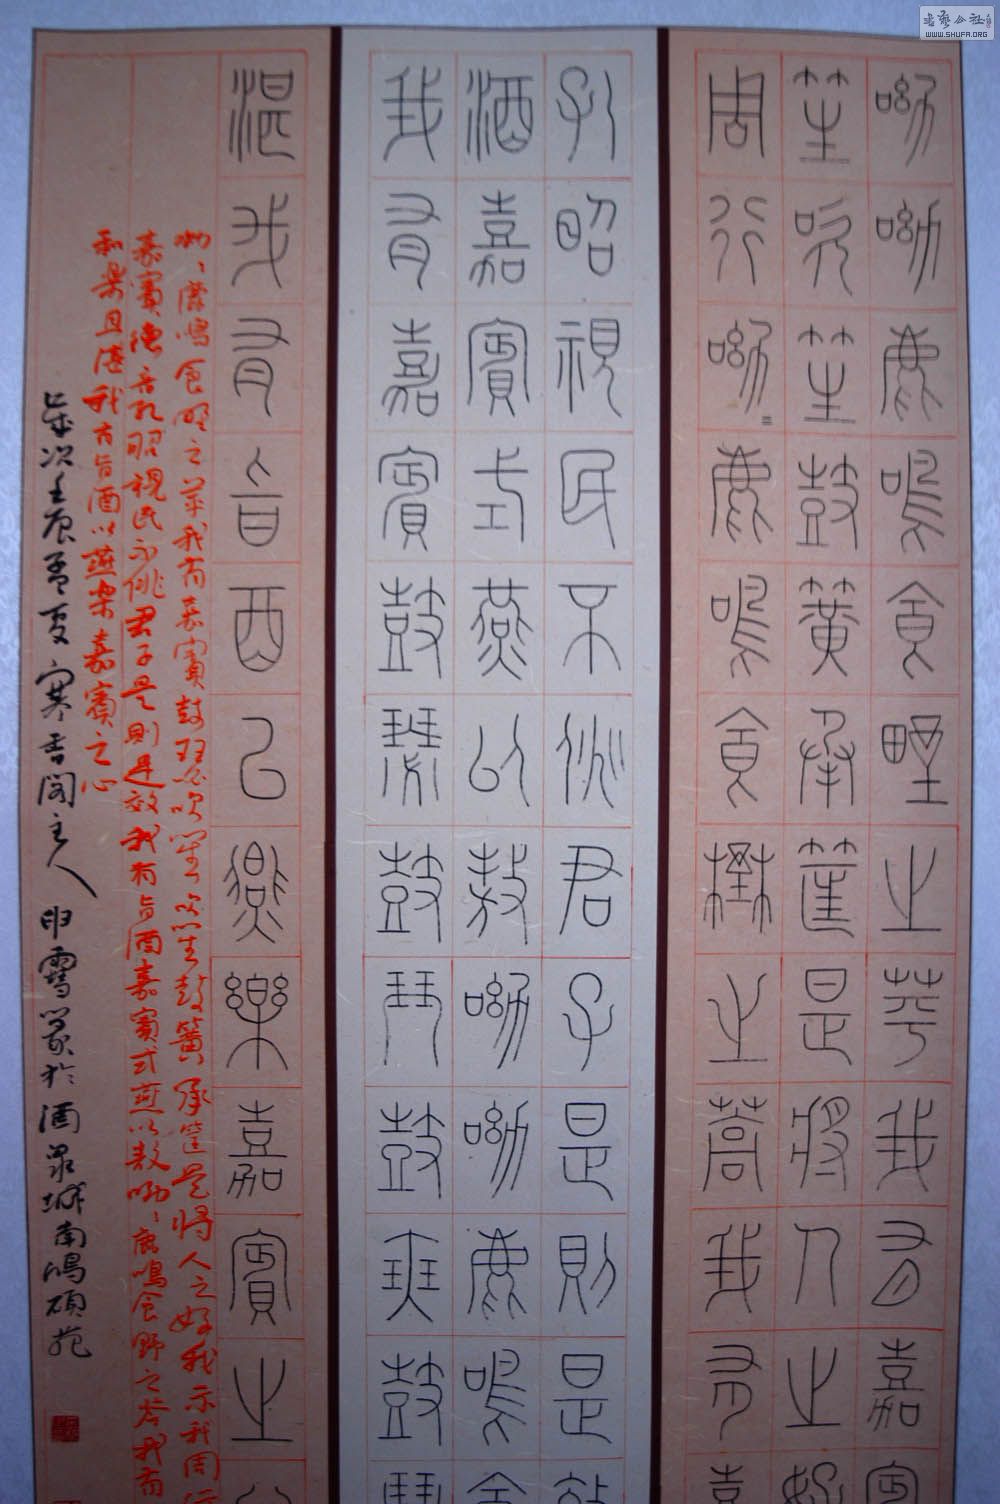 呦呦鹿鳴食野之苹我有嘉賓
笙吹笙鼓簧承筐是將人之好
周行呦鹿鳴食野之蒿我有嘉
孔昭視民不恌君子是則是效
酒嘉賓式燕以敖呦呦鹿鳴食
我有嘉賓鼓瑟鼓琴鼓瑟鼓琴
湛我有旨酉以燕樂嘉賓之心
呦、鹿鳴食野之苹我有嘉賓鼓瑟吹笙吹笙鼓簧承筐是將人之好我示我周行
嘉賓德音孔昭視民不佻君子是則是效我有旨酒嘉賓式燕以敖呦、鹿鳴食野之芩我有
和樂且湛我有旨酒以燕樂嘉賓之心
歲次壬辰孟夏寒香閣主人 申雪篆於酒泉城南鴻碩苑
书艺公社
WWW.SHUFA.ORG